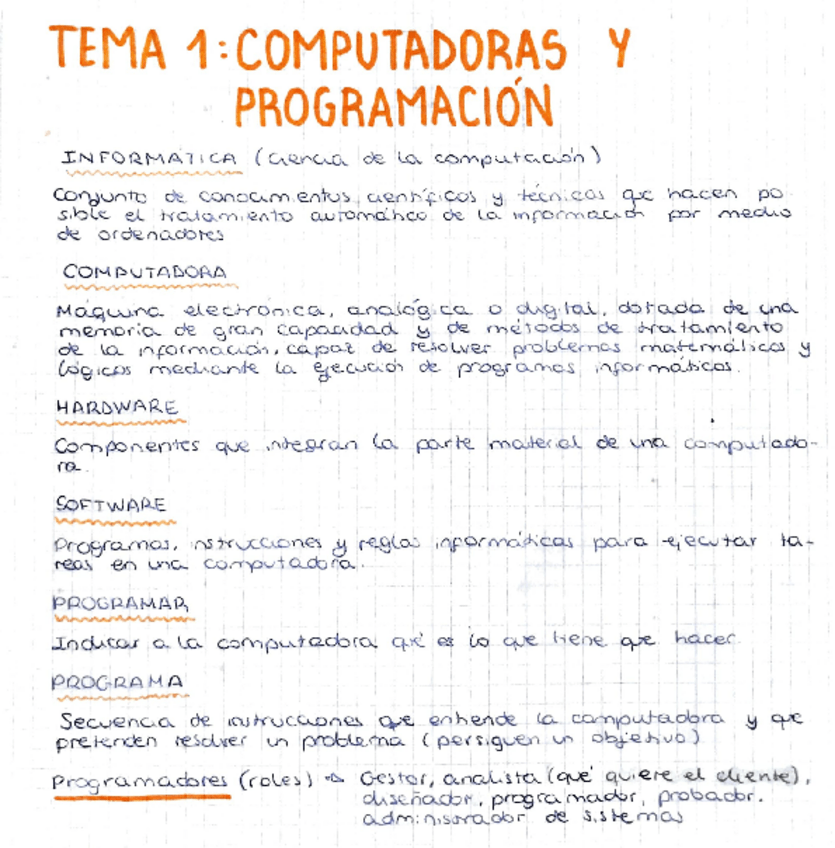 TEMA 1: COMPUTADORAS Y
PROGRAMACIÓN
INFORMÁTICA (ciencia de la computación)
Conjunto de conocimientos científicos y técnicos que hacen po
sible el tratamiento automático de la información por medio
de ordenadores
COMPUTADORA
Máquina electrónica, analógica o digital, dotada de una
memoria de gran capacidad y de métodos de tratamiento
de la información, capaz de resolver problemas matemáticos y
lógicos mediante la ejecución de programas informáticos.
HARDWARE
Componentes que integran la parte material de una computado-
ra.
SOFTWARE
Programas, instrucciones y reglas informáticas para ejecutar ta-
reas en una computadora.
PROGRAMAR
Indicar a la computadora qué es lo que tiene que hacer.
PROGRAMA
Secuencia de instrucciones que entiende la computadora y que
pretenden resolver un problema (persiguen un objetivo)
Programadores (roles) → Gestor, analista (qué quiere el cliente),
diseñador, programador, probador.
administrador de sistemas